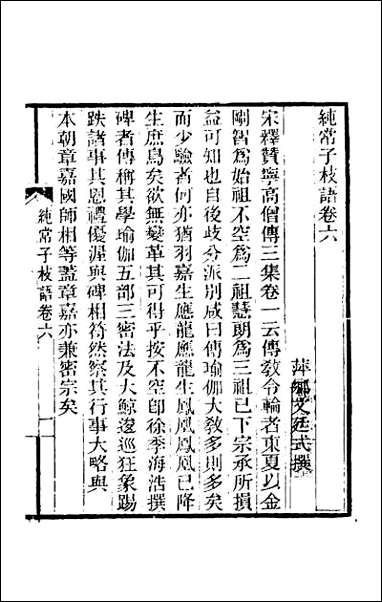 純常子枝語卷六
萍鄉文廷式撰
宋釋贊寧高僧傳三集卷一云傳教令輪者東夏以金
剛智為始祖不空為二祖慧朗為三祖已下宗承所損
益可知也自後歧分派別咸曰傳瑜伽大教多則多矣
而少驗者何亦猶羽嘉生應龍應龍生鳳凰鳳凰已降
生庶鳥矣欲無變革其可得乎按不空卽徐季海撰
碑者傳稱其學瑜伽五部三密法及大鯨逡巡狂象踢
跌諸事其恩禮優渥與碑相符然察其行事大略與
本朝章嘉國師相等蓋章嘉亦兼密宗矣
純常子枝語卷六
一